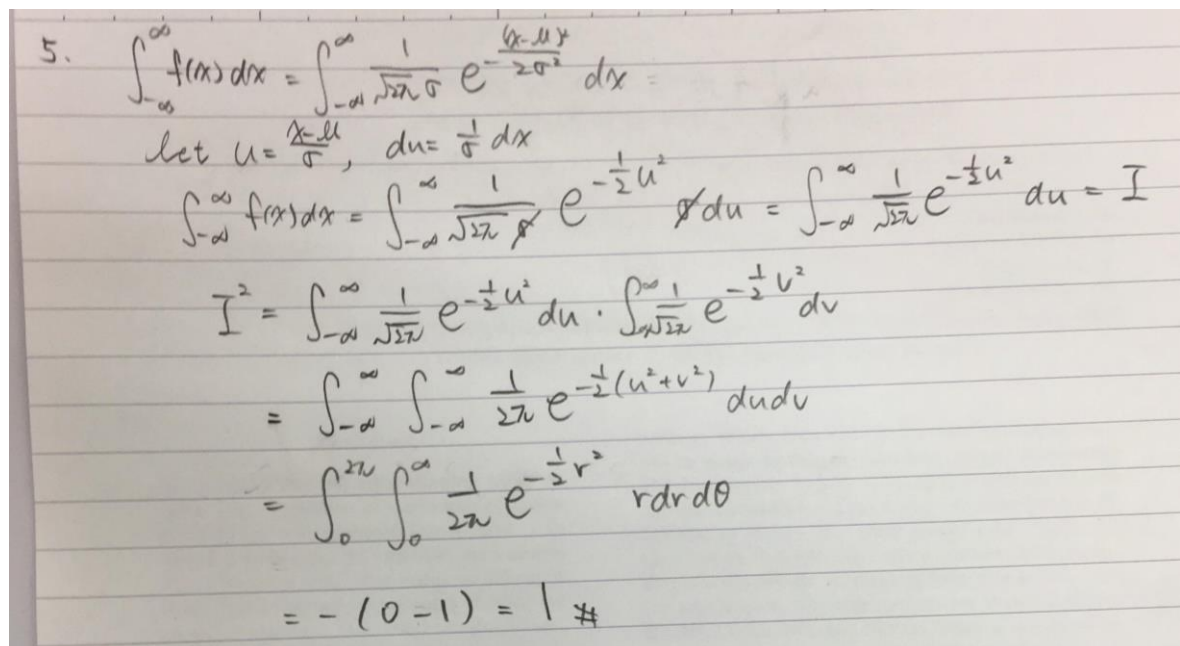 5. ∫_{-∞}^{∞} f(x) dx = ∫_{-∞}^{∞} \frac{1}{\sqrt{2π} σ} e^{-\frac{(x-μ)²}{2σ²}} dx =
let u = \frac{x-μ}{σ}, du = \frac{1}{σ} dx
∫_{-∞}^{∞} f(x) dx = ∫_{-∞}^{∞} \frac{1}{\sqrt{2π} σ̸} e^{-\frac{1}{2}u²} σ̸ du = ∫_{-∞}^{∞} \frac{1}{\sqrt{2π}} e^{-\frac{1}{2}u²} du = I
I² = ∫_{-∞}^{∞} \frac{1}{\sqrt{2π}} e^{-\frac{1}{2}u²} du · ∫_{-∞}^{∞} \frac{1}{\sqrt{2π}} e^{-\frac{1}{2}v²} dv
= ∫_{-∞}^{∞} ∫_{-∞}^{∞} \frac{1}{2π} e^{-\frac{1}{2}(u²+v²)} du dv
= ∫_{0}^{2π} ∫_{0}^{∞} \frac{1}{2π} e^{-\frac{1}{2}r²} r dr dθ
= -(0-1) = 1 #